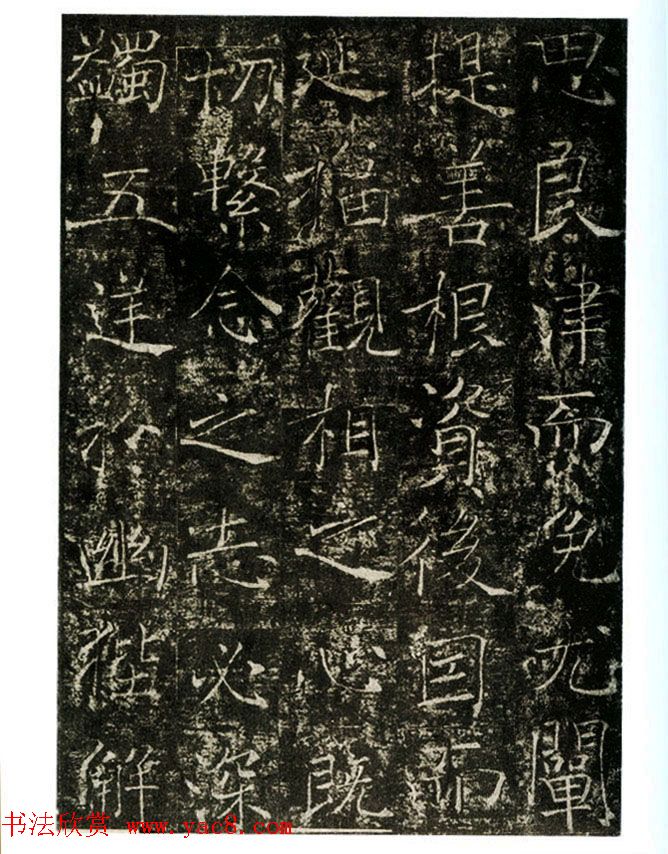 思良津而免尤闡
提善根資後因
延觀相之心既
切繫念之志必深
蠲五逆於幽解
书法欣赏 www.yac8.com